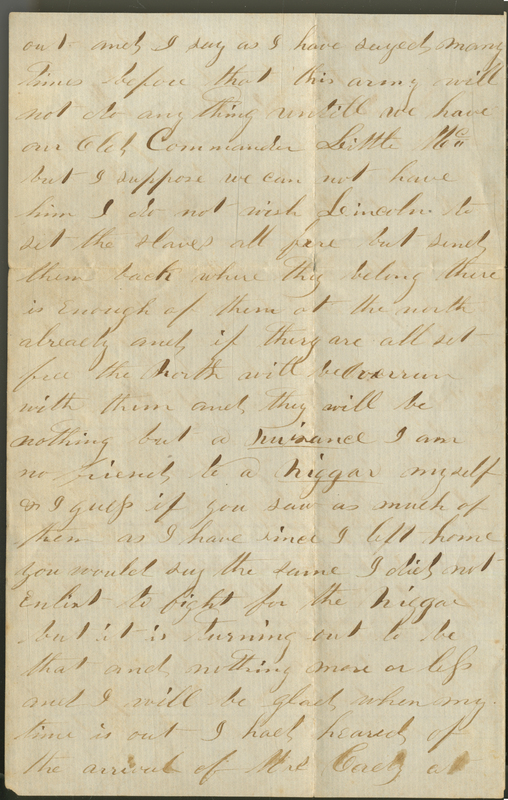 out and I say as I have sayed many
times before that this army will
not do any thing untill we have
our Old Commander Little Mc
but I suppose we can not have
him I do not wish Lincoln to
set the slaves all free but send
them back where they belong there
is enough of them at the north
already and if they are all set
free the North will be overrun
with them and they will be
nothing but a nuisance I am
no friend to a niggar myself
& I guess if you saw as much of
them as I have since I left home
you would say the same I did not
enlist to fight for the niggar
but it is turning out to be
that and nothing more or less
and I will be glad when my
time is out I had heared of
the arrival of Mrs at